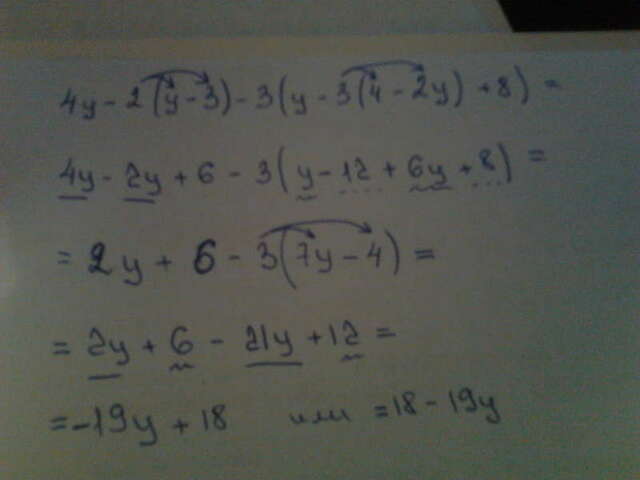 4y - 2(y - 3) - 3(y - 3(4 - 2y) + 8) =
4y - 2y + 6 - 3(y - 12 + 6y + 8) =
= 2y + 6 - 3(7y - 4) =
= 2y + 6 - 21y + 12 =
= -19y + 18 или = 18 - 19y